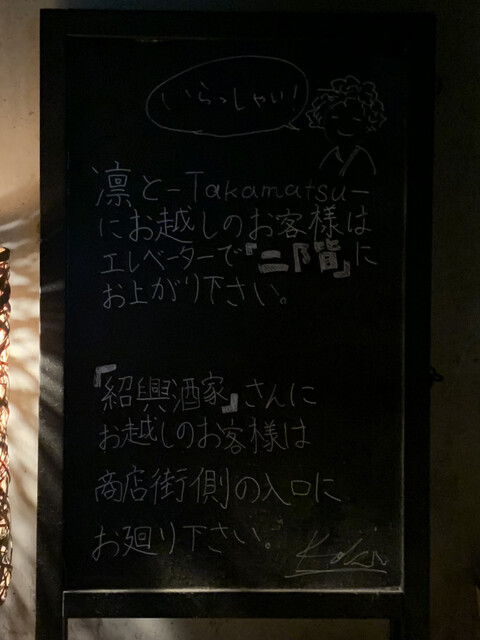 いらっしゃい!
凛と-Takamatsu-
にお越しのお客様は
エレベーターで『二階』に
お上がり下さい。
『紹興酒家』さんに
お越しのお客様は
商店街側の入口に
お廻り下さい。